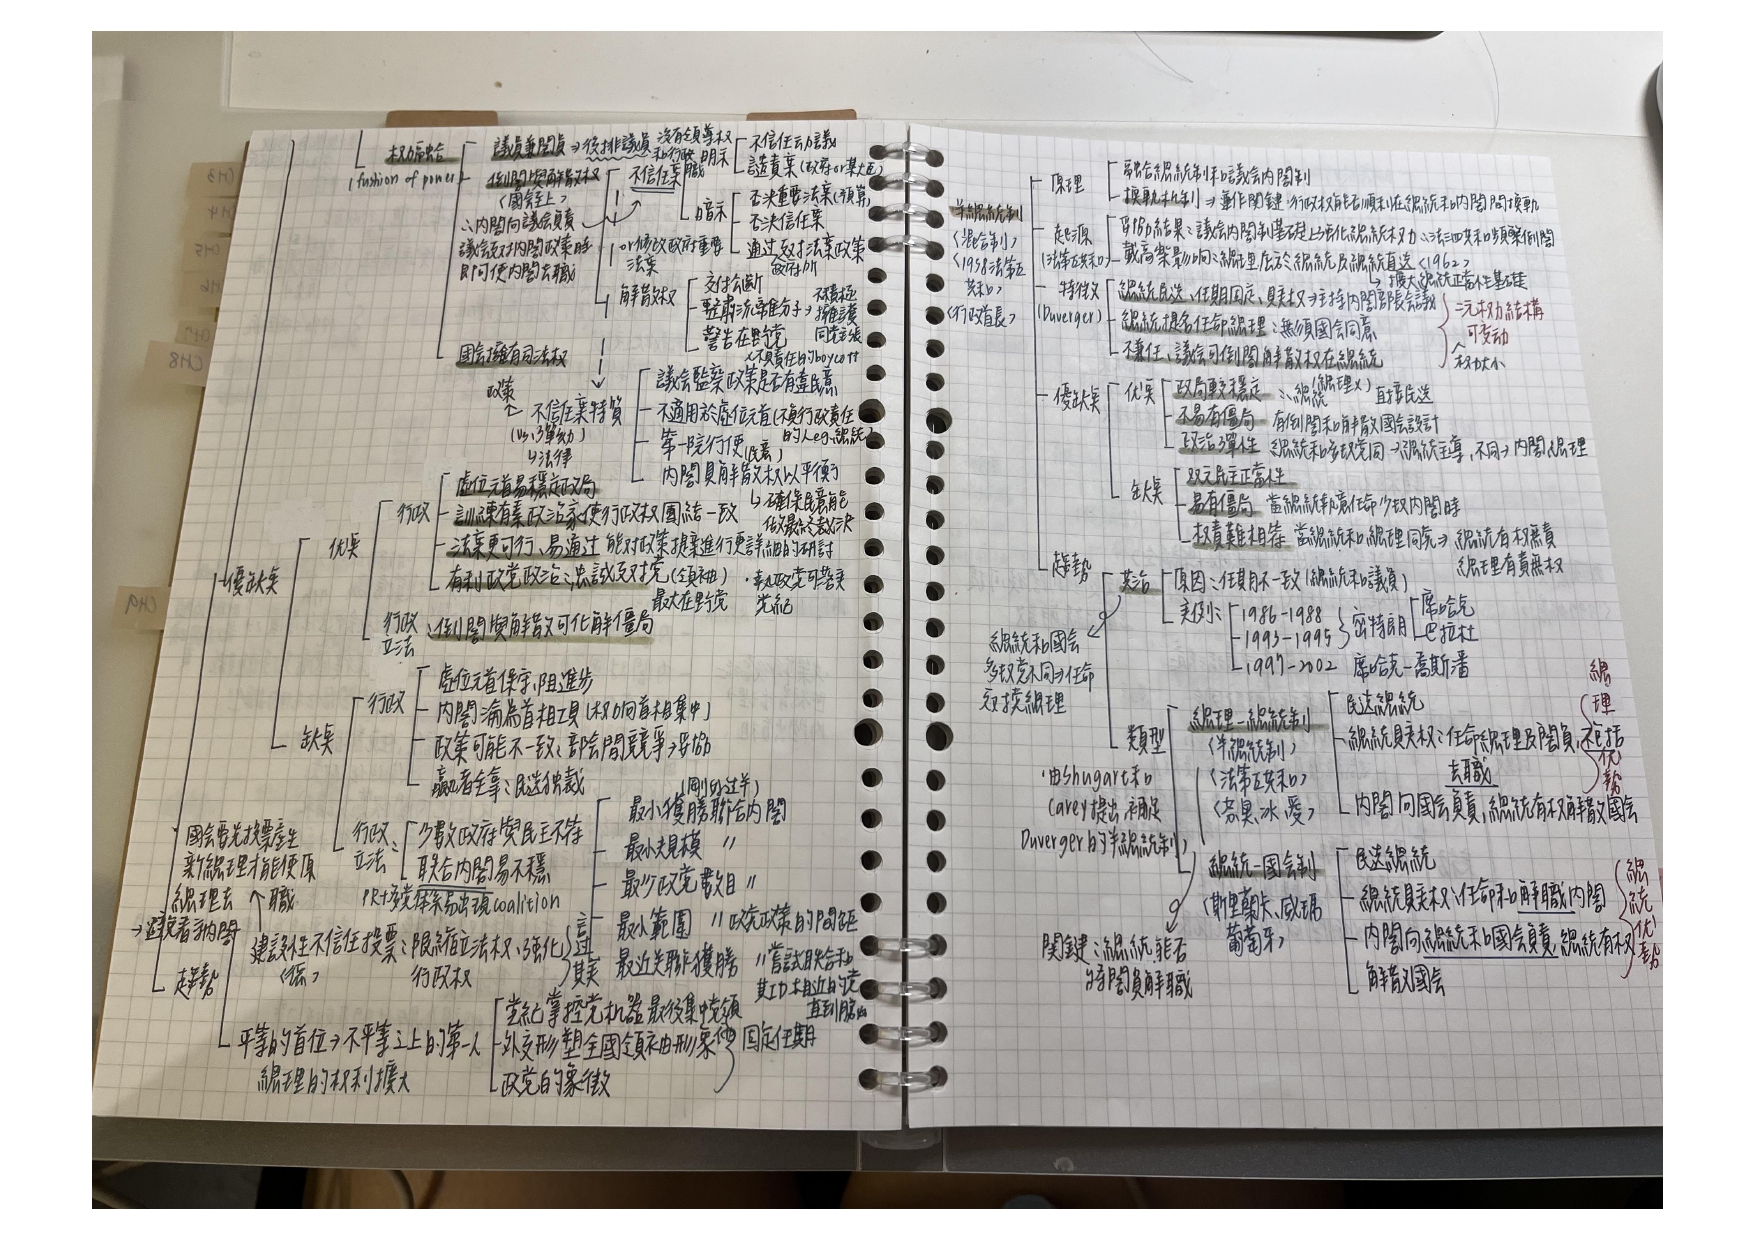 權力融合
(fushion of power)
議員兼閣員→後排議員 沒有領導權和行政職
倒閣與解散權
〈國会至上〉
∴內閣向議会負責
議会反对內閣政策時
即可使內閣去職
國会擁有司法權
不信任案
明示
不信任动議
譴責案(政府or某大臣)
暗示
否決重要法案(預算)
否決信任案
通过反对法案政策
政府所
or修改政府重要
法案
解散权
交付公斷
整肅流離分子→不積極擁護黨
同党主張
警告在野党
不負責任的boycott
政策
不信任案特質
(vs.彈劾)
↳法律
議会監察政策是否有違民意
不適用於虛位元首(不負行政責任
的人eg.總統)
第一院行使(民意)
內閣具解散权以平衡
↳確保民意能
做最終裁決
優缺點
优點
行政
虛位元首易穩定政局
訓練有素政治家使行政权團結一致
法案更可行、易通过 能对政策提案進行更詳細的研討
有利政党政治:忠誠反对党(領袖)
最大在野党
·執政党可管束
党紀
行政
立法
:倒閣與解散可化解僵局
缺點
行政
虛位元首保守、阻進步
內閣淪為首相工具(权力向首相集中)
政策可能不一致:部会間競爭→妥協
贏者全拿:民选独裁
行政
立法:
少數政府與民主不符
联合內閣易不穩
PR+多党体系易出現coalition
(剛好过半)
最小獲勝聯合內閣
最小規模 〃
最少政党數目 〃
最小範圍 〃 政党政策的間距
最近关聯獲勝 〃嘗試联合和
其ID相近的党
直到勝出
國会要先投票產生
新總理才能使原
總理去職
→避免看守內閣
趨勢
建設性不信任投票:限縮立法权、強化
〈德〉 行政权
平等的首位→不平等之上的第一人
總理的权利擴大
党紀掌控党机器最後集中党領
外交形塑全國領袖形象
政党的象徵
固定任期
半總統制
〈混合制〉
〈1958法第五
共和〉
〈行政首長〉
原理
融合總統制和議会內閣制
換軌机制→運作関鍵:行政权能否順利在總統和內閣間換軌
起源
(法第五共和)
妥協結果:議会內閣制基礎上強化總統权力∴法三四共和頻繁倒閣
戴高樂影响:總理居於總統及總統直选〈1962〉
↳擴大總統正當性基礎
特徵
(Duverger)
總統民选、任期固定、具実权→主持內閣部長会議
總統提名任命總理:無須國会同意
不兼任、議会可倒閣解散权在總統
二元权力結構
可变动
权力大小
優缺點
优點
政局較穩定 ∴總統(總理x)直接民选
不易有僵局 有倒閣和解散國会設計
政治彈性 總統和多数党同→總統主導,不同→內閣總理
缺點
双元民主正當性
易有僵局 當總統執意任命少数內閣時
权責難相符 當總統和總理同党→總統有权無責
總理有責無权
趨勢
共治
原因:任期不一致(總統和議員)
実例:
1986-1988
1993-1995
密特朗
席哈克
巴拉杜
1997-2002 席哈克-喬斯潘
總統和國会
多数党不同→任命
反对党總理
類型
·由Shugart和
Carey提出,補足
Duverger的半總統制
總理-總統制
〈半總統制〉
〈法第五共和〉
〈芬、奧、冰、愛〉
民选總統
總統具実权:任命總理及閣員,不包括
去職
內閣向國会負責,總統有权解散國会
總理优勢
總統-國会制
〈斯里蘭卡、威瑪
葡萄牙〉
民选總統
總統具実权:任命和解職內閣
內閣向總統和國会負責,總統有权
解散國会
總統优勢
関鍵:總統能否
將閣員解職
CH8
CH9